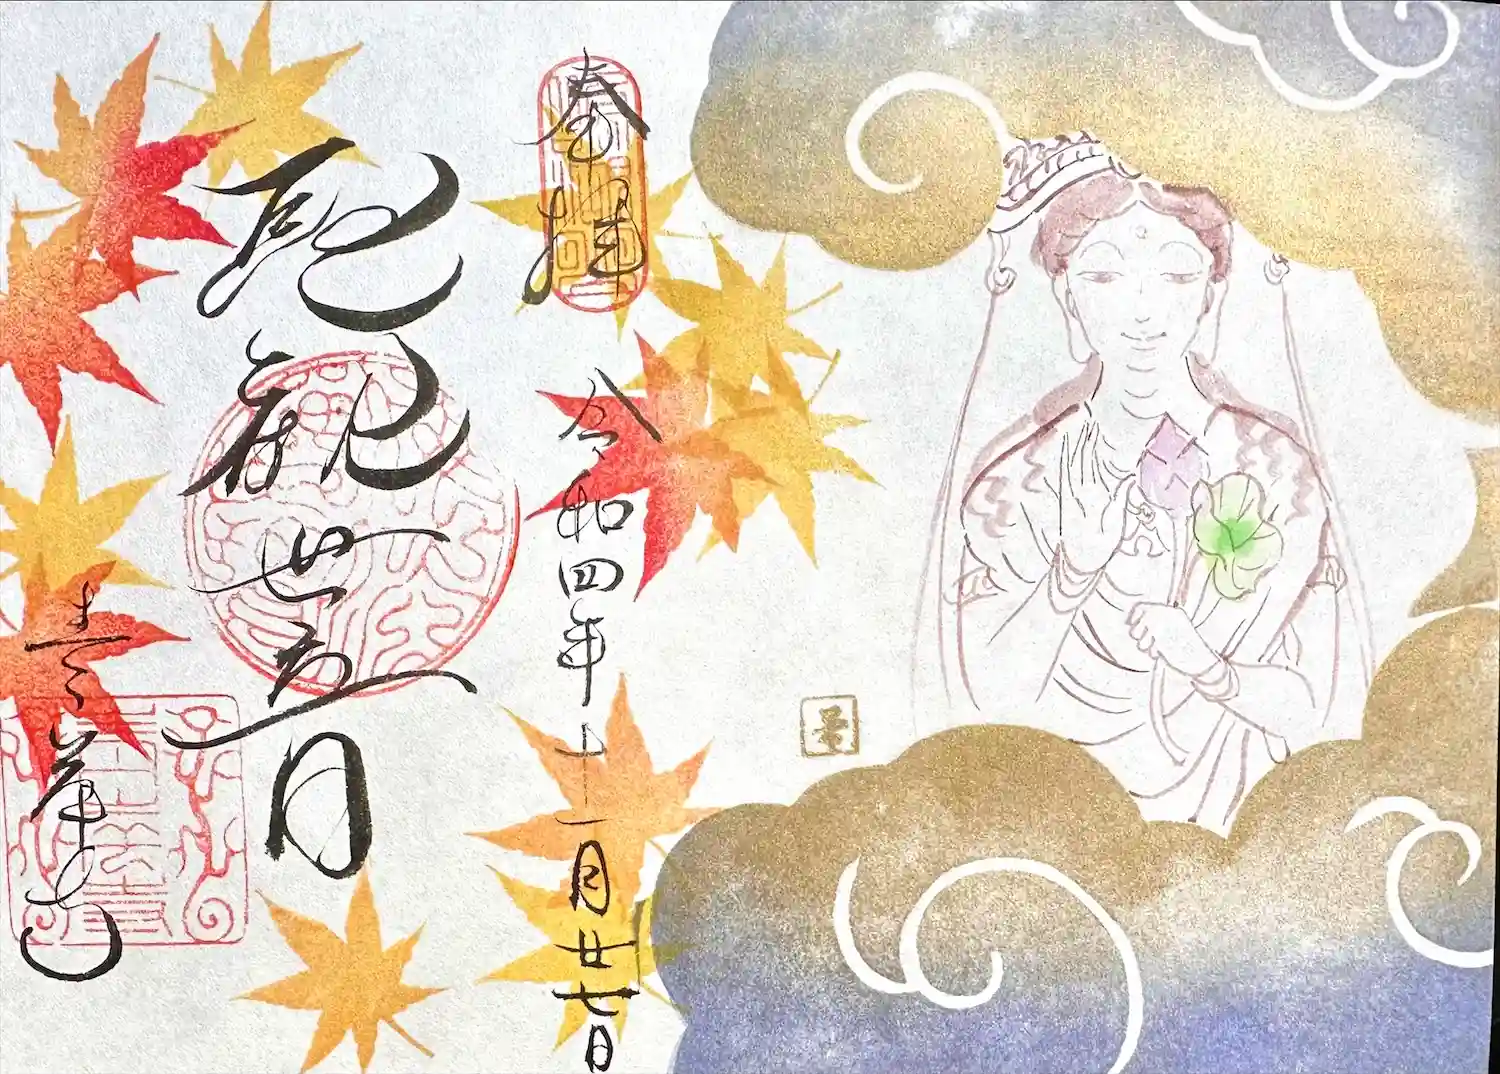 奉拝
令和四年十一月廿七日
聖観世音